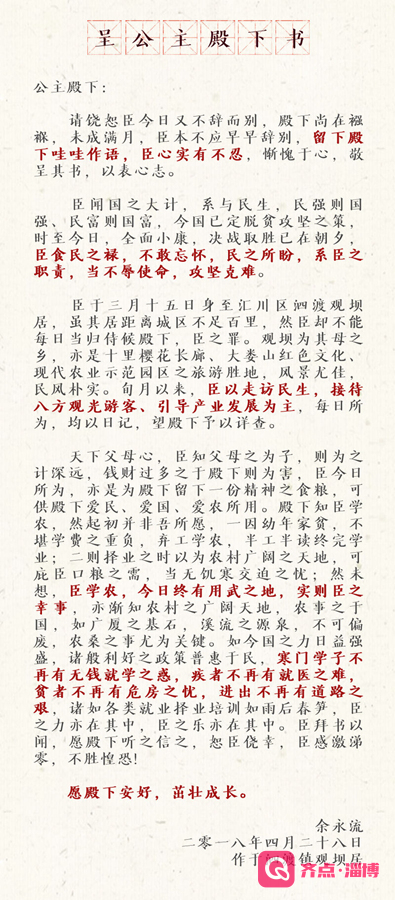 呈公主殿下书
公主殿下：
请饶恕臣今日又不辞而别，殿下尚在襁
褓，未成满月，臣本不应早早辞别，留下殿
下哇哇作语，臣心实有不忍，惭愧于心，敬
呈其书，以表心志。
臣闻国之大计，系与民生，民强则国
强、民富则国富，今国已定脱贫攻坚之策，
时至今日，全面小康，决战取胜已在朝夕，
臣食民之禄，不敢忘怀，民之所盼，系臣之
职责，当不辱使命，攻坚克难。
臣于三月十五日身至汇川区泗渡观坝
居，虽其居距离城区不足百里，然臣却不能
每日当归侍候殿下，臣之罪。观坝为其母之
乡，亦是十里樱花长廊、大娄山红色文化、
现代农业示范园区之旅游胜地，风景尤佳，
民风朴实。旬月以来，臣以走访民生，接待
八方观光游客、引导产业发展为主，每日所
为，均以日记，望殿下予以详查。
天下父母心，臣知父母之为子，则为之
计深远，钱财过多之于殿下则为害，臣今日
所为，亦是为殿下留下一份精神之食粮，可
供殿下爱民、爱国、爱农所用。殿下知臣学
农，然起初并非吾所愿，一因幼年家贫，不
堪学费之重负，弃工学农，半工半读终完学
业；二则择业之时以为农村广阔之天地，可
庇臣口粮之需，当无饥寒交迫之忧；然未
想，臣学农，今日终有用武之地，实则臣之
幸事，亦渐知农村之广阔天地，农事之于
国，如广厦之基石，溪流之源泉，不可偏
废，农桑之事尤为关键。如今国之力日益强
盛，诸般利好之政策普惠于民，寒门学子不
再有无钱就学之惑，疾者不再有就医之难，
贫者不再有危房之忧，进出不再有道路之
艰，诸如各类就业择业培训如雨后春笋，臣
之力亦在其中，臣之乐亦在其中。臣拜书以
闻，愿殿下听之信之，恕臣侥幸，臣感激涕
零，不胜惶恐!
愿殿下安好，茁壮成长。
余永流
二零一八年四月二十八日
作于泗渡镇观坝居
齐点·淄博